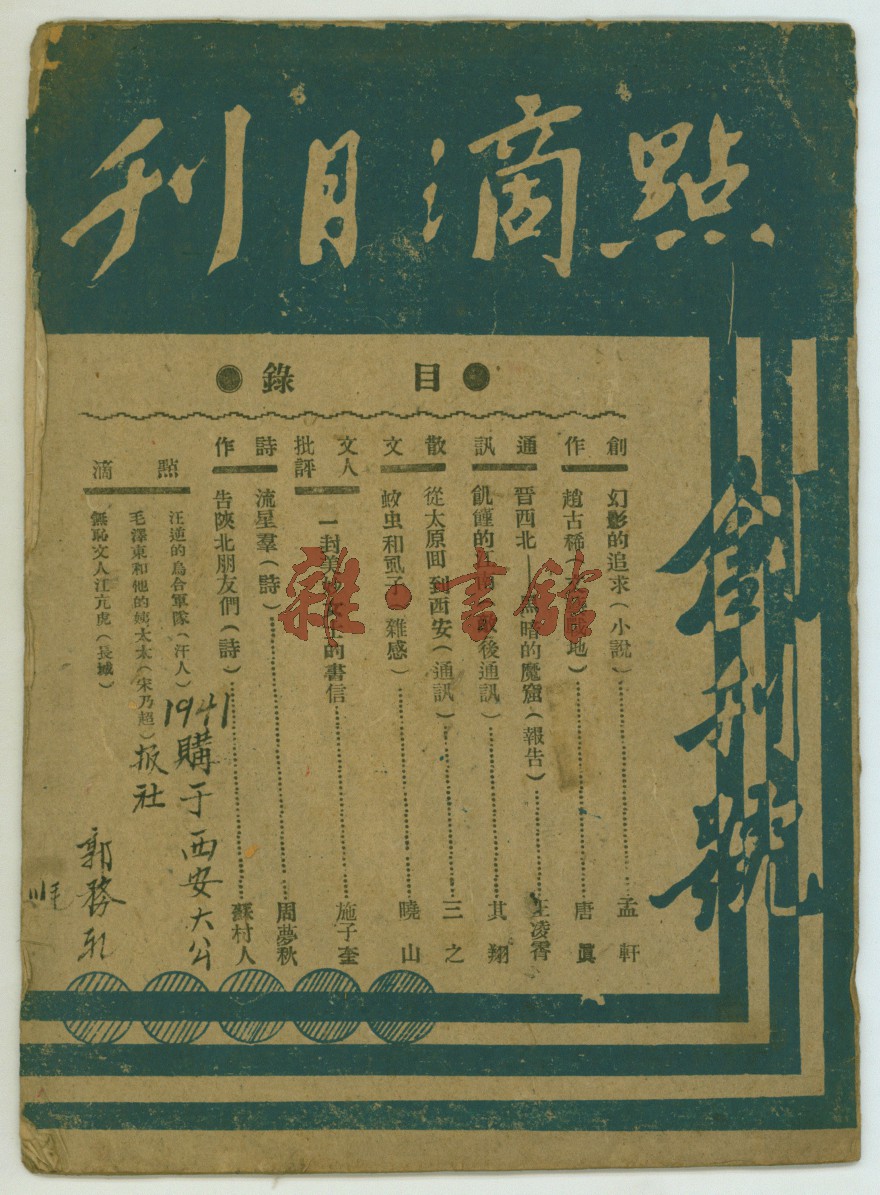 點滴月刊
創刊號
目錄
創作
幻影的追求(小說)孟軒
趙古稀(地)唐眞
通訊
晉西北——黑暗的魔窟(報告)王凌霄
飢饉的後通訊)其翔
散文
從太原回到西安(通訊)三之
蚊虫和虱子(雜感)曉山
文人批評
一封美妙女士的書信施子奎
詩作
流星羣(詩)周夢秋
告陝北朋友們(詩)蘇村人
點滴
汪逆的烏合軍隊(汗人)
毛澤東和他的姨太太(宋乃超)
無恥文人江亢虎(長城)
1941購于西安大公
报社
郭務
雜·書館